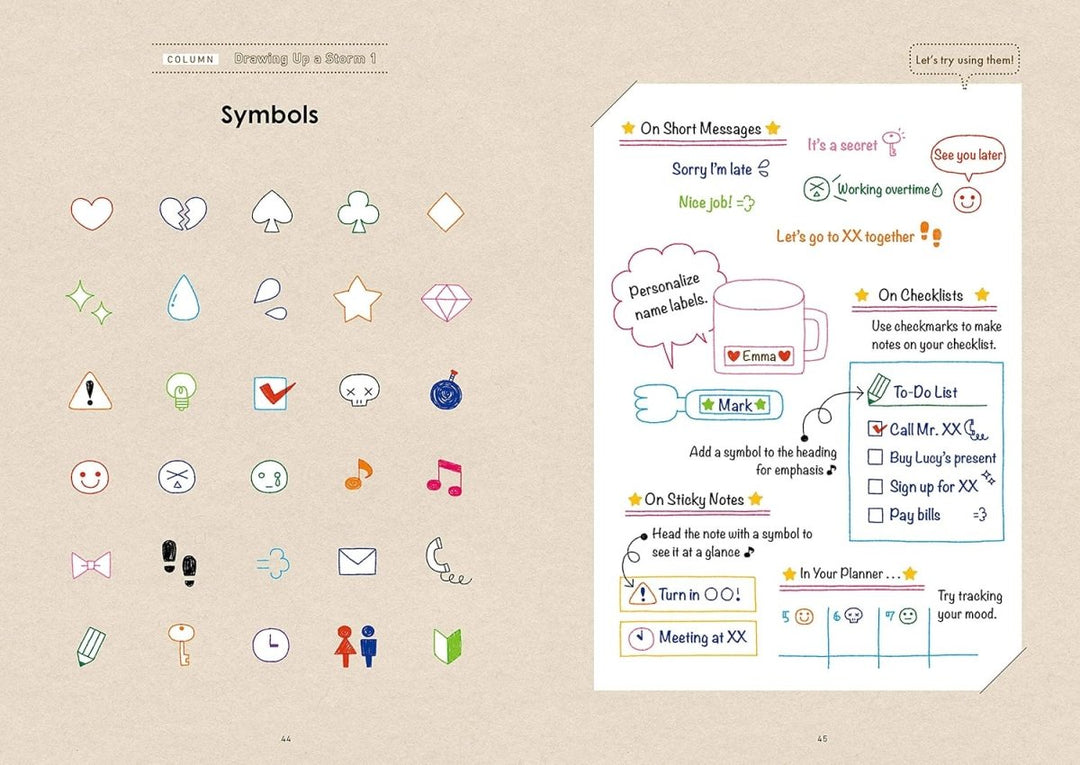 COLUMN Drawing Up a Storm 1
Symbols
44
Let's try using them!
On Short Messages
It's a secret
Sorry I'm late
See you later
Working overtime
Nice job!
Let's go to XX together
Personalize
name labels.
Emma
Mark
On Checklists
Use checkmarks to make
notes on your checklist.
To-Do List
Call Mr. XX
Buy Lucy's present
Sign up for XX
Pay bills
Add a symbol to the heading
for emphasis ♪
On Sticky Notes
Head the note with a symbol to
see it at a glance ♪
! Turn in ○○!
Meeting at XX
In Your Planner...
Try tracking
your mood.
5 6 7
45